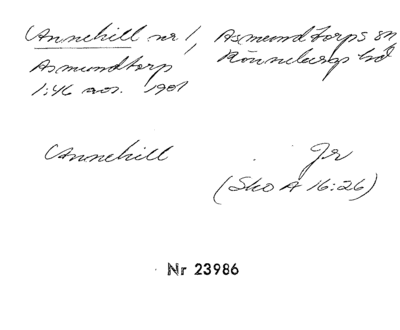 Annehill nr 1, Asmundtorps sn
Asmundtorp Rönnebergs hd
1:46 avs. 1901
Annehill Jr
(Sko A 16:26)
Nr 23986